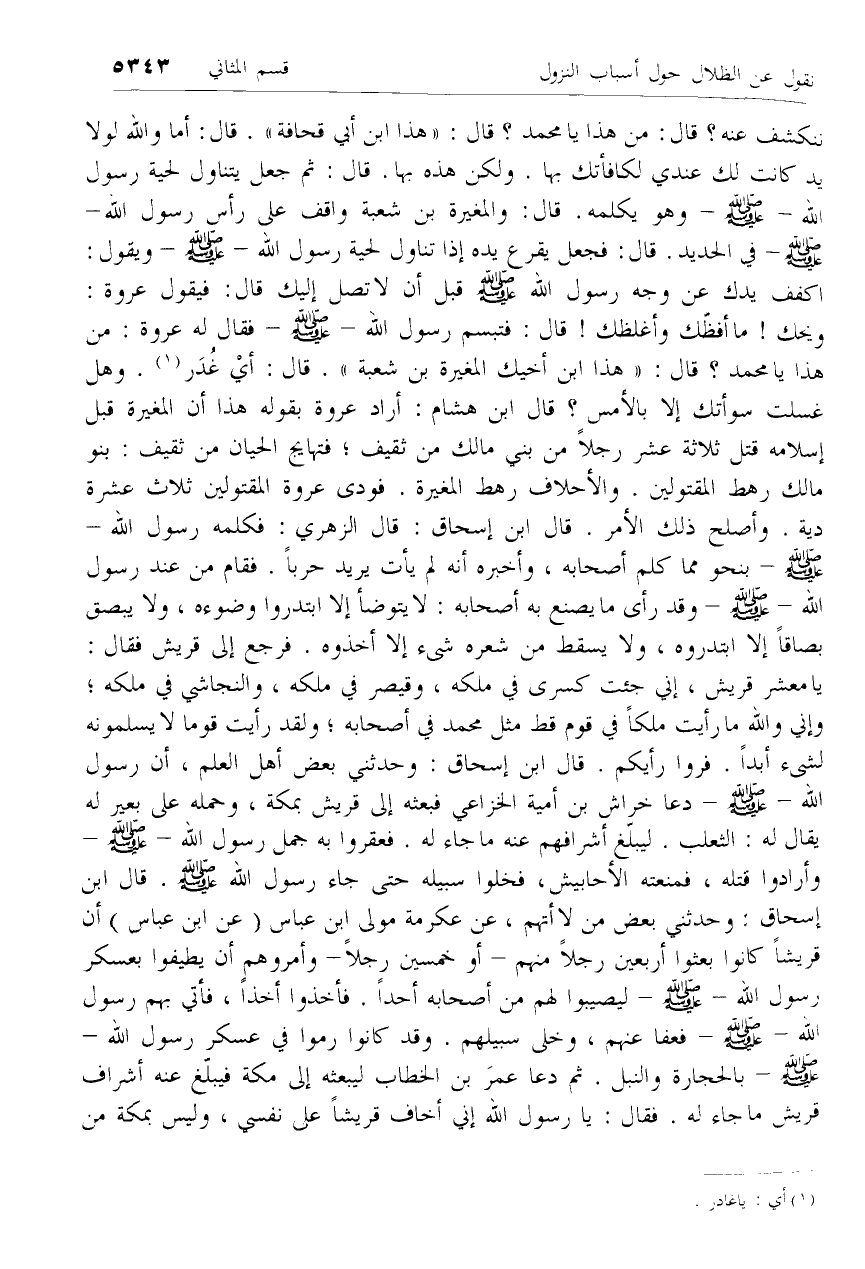 نقول عن الظلال حول أسباب النزول قسم المثاني ٥٣٤٣
ننكشف عنه ؟ قال : من هذا يا محمد ؟ قال : « هذا ابن أبي قحافة » . قال : أما والله لولا
يد كانت لك عندي لكافأتك بها . ولكن هذه بها . قال : ثم جعل يتناول لحية رسول
الله – ﷺ – وهو يكلمه . قال : والمغيرة بن شعبة واقف على رأس رسول الله –
ﷺ – في الحديد . قال : فجعل يقرع يده إذا تناول لحية رسول الله – ﷺ – ويقول :
اكفف يدك عن وجه رسول الله ﷺ قبل أن لا تصل إليك قال : فيقول عروة :
ويحك ! ما أفظّك وأغلظك ! قال : فتبسم رسول الله – ﷺ – فقال له عروة : من
هذا يا محمد ؟ قال : « هذا ابن أخيك المغيرة بن شعبة » . قال : أيْ غُدَر (١) . وهل
غسلت سوأتك إلا بالأمس ؟ قال ابن هشام : أراد عروة بقوله هذا أن المغيرة قبل
إسلامه قتل ثلاثة عشر رجلاً من بني مالك من ثقيف ؛ فتهايج الحيان من ثقيف : بنو
مالك رهط المقتولين . والأحلاف رهط المغيرة . فودى عروة المقتولين ثلاث عشرة
دية . وأصلح ذلك الأمر . قال ابن إسحاق : قال الزهري : فكلمه رسول الله –
ﷺ – بنحو مما كلم أصحابه ، وأخبره أنه لم يأت يريد حرباً . فقام من عند رسول
الله – ﷺ – وقد رأى ما يصنع به أصحابه : لا يتوضأ إلا ابتدروا وضوءه ، ولا يبصق
بصاقاً إلا ابتدروه ، ولا يسقط من شعره شىء إلا أخذوه . فرجع إلى قريش فقال :
يا معشر قريش ، إني جئت كسرى في ملكه ، وقيصر في ملكه ، والنجاشي في ملكه ؛
وإني والله ما رأيت ملكاً في قوم قط مثل محمد في أصحابه ؛ ولقد رأيت قوما لا يسلمونه
لشىء أبداً . فروا رأيكم . قال ابن إسحاق : وحدثني بعض أهل العلم ، أن رسول
الله – ﷺ – دعا خراش بن أمية الخزاعي فبعثه إلى قريش بمكة ، وحمله على بعير له
يقال له : الثعلب . ليبلّغ أشرافهم عنه ما جاء له . فعقروا به جمل رسول الله – ﷺ –
وأرادوا قتله ، فمنعته الأحابيش ، فخلوا سبيله حتى جاء رسول الله ﷺ . قال ابن
إسحاق : وحدثني بعض من لا أتهم ، عن عكرمة مولى ابن عباس ( عن ابن عباس ) أن
قريشاً كانوا بعثوا أربعين رجلاً منهم – أو خمسين رجلاً – وأمروهم أن يطيفوا بعسكر
رسول الله – ﷺ – ليصيبوا لهم من أصحابه أحداً . فأخذوا أخذاً ، فأتي بهم رسول
الله – ﷺ – فعفا عنهم ، وخلى سبيلهم . وقد كانوا رموا في عسكر رسول الله –
ﷺ – بالحجارة والنبل . ثم دعا عمرَ بن الخطاب ليبعثه إلى مكة فيبلّغ عنه أشراف
قريش ما جاء له . فقال : يا رسول الله إني أخاف قريشاً على نفسي ، وليس بمكة من
(١) أي : يا غادر .